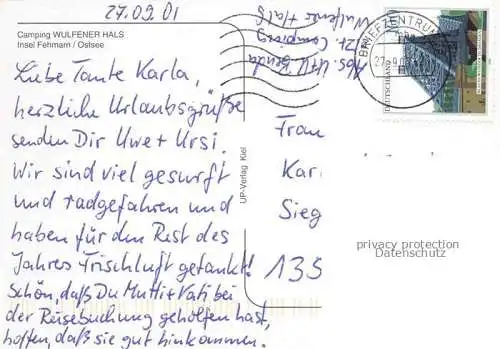 27.09.01
Camping WULFENER HALS
Insel Fehmarn / Ostsee
Liebe Tante Karla,
herzliche Urlaubsgrüße
senden Dir Uwe + Ursi.
Wir sind viel gesurft
und radgefahren und
haben für den Rest des
Jahres Frischluft getankt!
Schön, daß Du Mutti + Vati bei
der Reisebuchung geholfen hast,
hoffen, daß sie gut hinkommen.
UP-Verlag Kiel
Abs. U+U
zt. Camping
Wulfener Hals
BRIEFZENTRUM
DEUTSCHLAND
Frau
Kar
Sieg
135
privacy protection
Datenschutz